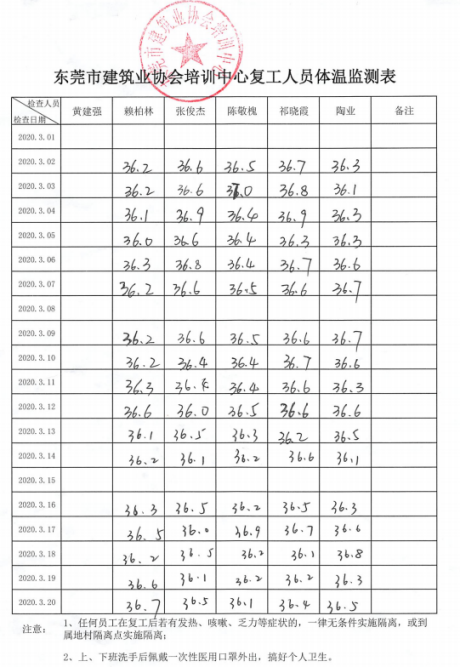 东莞市建筑业协会培训中心
东莞市建筑业协会培训中心复工人员体温监测表
检查人员 检查日期 黄建强 赖柏林 张俊杰 陈敬槐 祁晓霞 陶业 备注
2020.3.01
2020.3.02 36.2 36.6 36.5 36.7 36.3
2020.3.03 36.2 36.6 37.0 36.8 36.1
2020.3.04 36.1 36.9 36.4 36.9 36.3
2020.3.05 36.0 36.6 36.4 36.3 36.3
2020.3.06 36.3 36.8 36.4 36.7 36.6
2020.3.07 36.2 36.6 36.5 36.6 36.7
2020.3.08
2020.3.09 36.2 36.6 36.5 36.6 36.7
2020.3.10 36.2 36.4 36.4 36.7 36.6
2020.3.11 36.3 36.4 36.6 36.3
2020.3.12 36.6 36.0 36.5 36.6 36.6
2020.3.13 36.1 36.5 36.3 36.2 36.5
2020.3.14 36.2 36.1 36.2 36.6 36.1
2020.3.15
2020.3.16 36.3 36.5 36.2 36.5 36.3
2020.3.17 36.5 36.0 36.9 36.7 36.6
2020.3.18 36.2 36.5 36.2 36.1 36.8
2020.3.19 36.6 36.1 36.2 36.2 36.3
2020.3.20 36.7 36.5 36.1 36.4 36.5
注意： 1、任何员工在复工后若有发热、咳嗽、乏力等症状的，一律无条件实施隔离，或到
属地村隔离点实施隔离；
2、上、下班洗手后佩戴一次性医用口罩外出，搞好个人卫生。